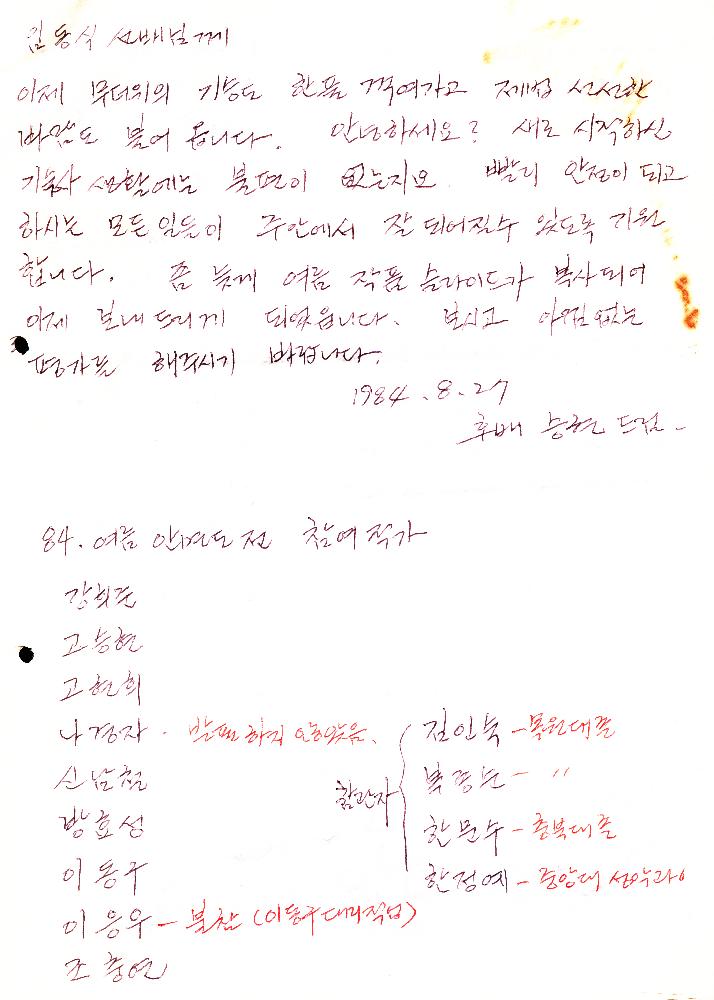 임동식 선배님께
이제 무더위의 기승도 한풀 꺽여가고 제법 선선한
바람도 불어 옵니다. 안녕하세요? 새로 시작하신
기숙사 생활에는 불편이 없는지요 빨리 안정이 되고
하시는 모든일들이 주안에서 잘 되어질수 있도록 기원
합니다. 좀 늦게 여름 작품 슬라이드가 복사되어
이제 보내드리게 되었읍니다. 보시고 아낌없는
평가를 해주시기 바랍니다.
1984. 8. 27
후배 승현 드림 -
84. 여름 안면도 전 참여작가
강희준
고승현
고현희
나경자 · 발표하지 않았음.
신남철
방효성
이동구
이응우 - 불참 (이동구 대리작업)
조충연
참관자
전인숙 - 목원대졸
복종순 - 〃
한문수 - 충북대졸
한정예 - 중앙대 성악과